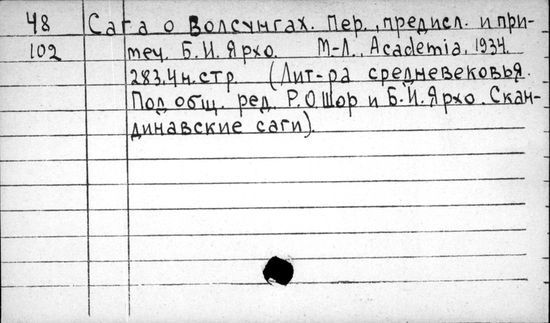 48 Сага о Волсунгах. Пер., предисл. и при-
102 меч. Б.И. Ярхо. М-Л., Academia, 1934.
283,4 н. стр. (Лит-ра средневековья.
Под общ. ред. Р.О. Шор и Б.И. Ярхо. Скан-
динавские саги).